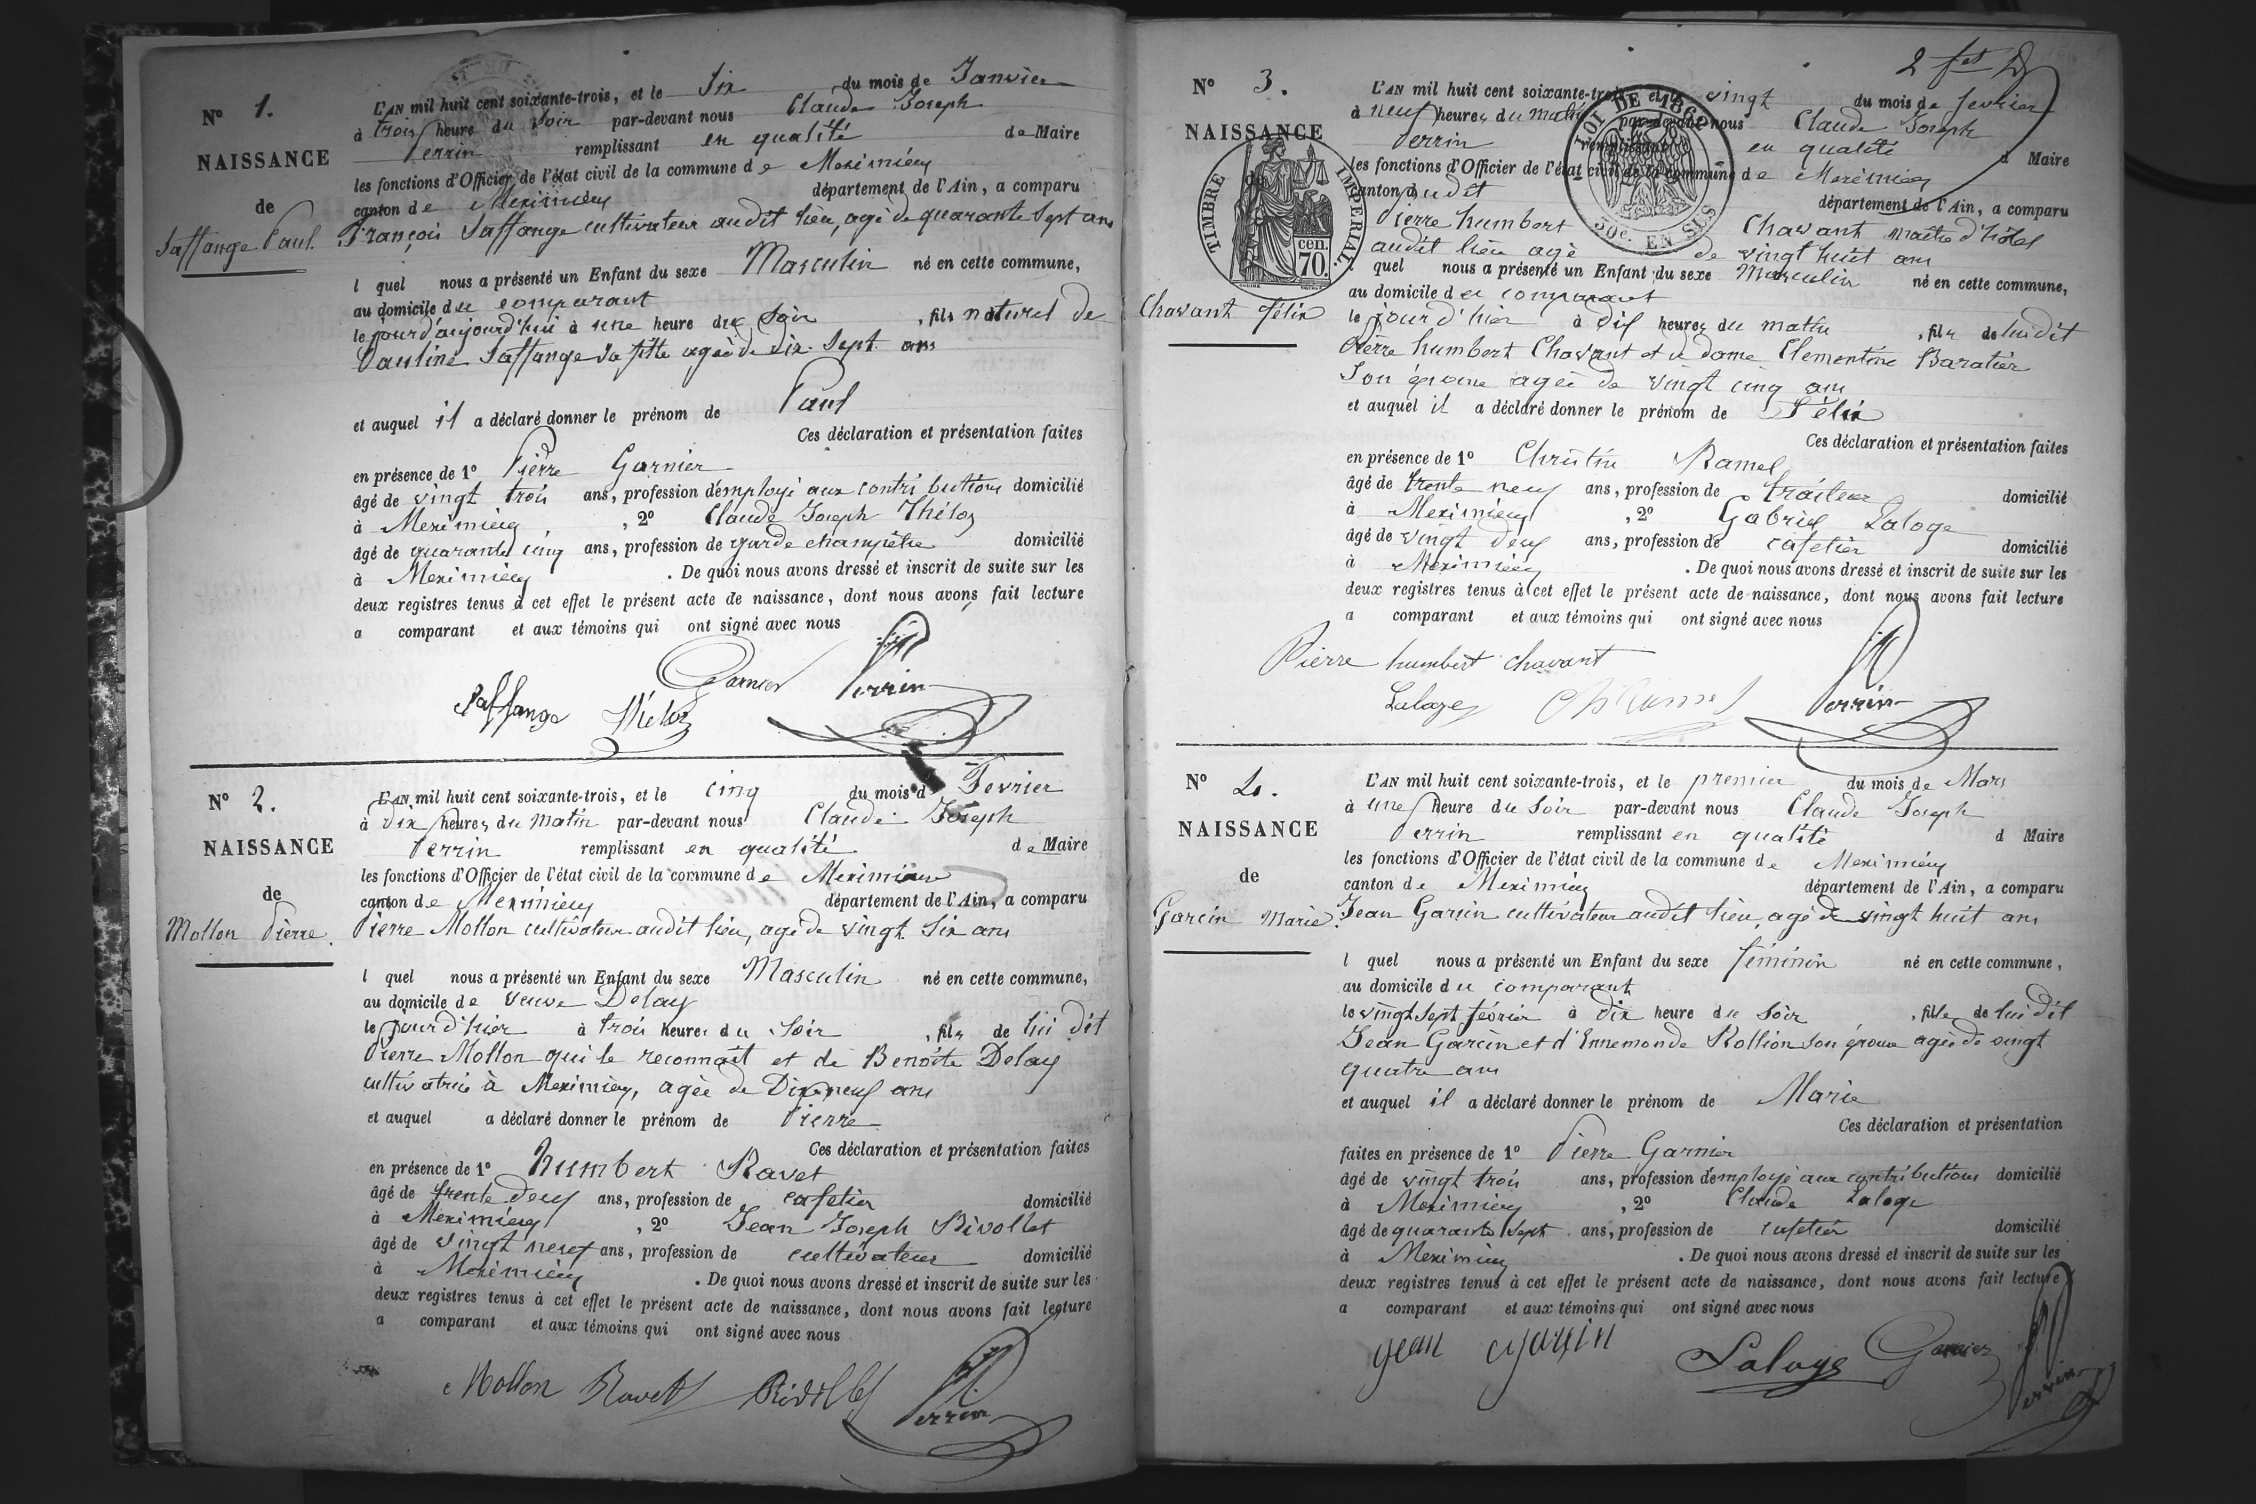 N° 1.
NAISSANCE
de
Laffange Paul.
L'AN mil huit cent soixante-trois, et le Six du mois de Janvier
à trois heure du Soir par-devant nous Claude Joseph
Perrin remplissant en qualité de Maire
les fonctions d'Officier de l'état civil de la commune de Meximieux
canton de Meximieux département de l'Ain, a comparu
François Laffange cultivateur audit lieu, agé de quarante Sept ans
l quel nous a présenté un Enfant du sexe Masculin né en cette commune,
au domicile du comparant
le jour d'aujourd'hui à une heure du Soir, fils naturel de
Pauline Laffange sa fille agée de dix-Sept ans
et auquel il a déclaré donner le prénom de Paul
Ces déclaration et présentation faites
en présence de 1° Pierre Garnier
âgé de vingt trois ans, profession d'employé aux contributions domicilié
à Meximieux, 2° Claude Joseph Théloz
âgé de quarante cinq ans, profession de garde champêtre domicilié
à Meximieux. De quoi nous avons dressé et inscrit de suite sur les
deux registres tenus à cet effet le présent acte de naissance, dont nous avons fait lecture
a comparant et aux témoins qui ont signé avec nous
Garnier Perrin
Laffange Théloz
N° 2.
NAISSANCE
de
Mollon Pierre.
L'AN mil huit cent soixante-trois, et le cinq du mois d Fevrier
à Dix heures du Matin par-devant nous Claude Joseph
Perrin remplissant en qualité de Maire
les fonctions d'Officier de l'état civil de la commune de Meximieux
canton de Meximieux département de l'Ain, a comparu
Pierre Mollon cultivateur audit lieu, agé de vingt Six ans
l quel nous a présenté un Enfant du sexe Masculin né en cette commune,
au domicile de veuve Delay
le jour d'hier à trois heures du Soir, fils de lui dit
Pierre Mollon qui le reconnait et de Benoite Delay
cultivatrice à Meximieux, agée de Dix-neuf ans
et auquel a déclaré donner le prénom de Pierre
Ces déclaration et présentation faites
en présence de 1° humbert Ravet
âgé de trente deux ans, profession de cafetier domicilié
à Meximieux, 2° Jean Joseph Rivollet
âgé de vingt neuf ans, profession de cultivateur domicilié
à Meximieux. De quoi nous avons dressé et inscrit de suite sur les
deux registres tenus à cet effet le présent acte de naissance, dont nous avons fait lecture
a comparant et aux témoins qui ont signé avec nous
Mollon Ravet Rivollet Perrin
N° 3.
NAISSANCE
de
Chavant félix
TIMBRE IMPÉRIAL.
cen.
70.
LOI DE 1862
50c. EN SUS
L'AN mil huit cent soixante-trois, et le vingt du mois de fevrier
à neuf heures du matin par-devant nous Claude Joseph
Perrin remplissant en qualité d Maire
les fonctions d'Officier de l'état civil de la commune de Meximieux
canton dudit département de l'Ain, a comparu
Pierre humbert Chavant maître d'hôtel
audit lieu agé de vingt huit ans
quel nous a présenté un Enfant du sexe Masculin né en cette commune,
au domicile du comparant
le jour d'hier à dix heures du matin, fils de lui dit
Pierre humbert Chavant et de dame Clementine Baratier
Son épouse agée de vingt cinq ans
et auquel il a déclaré donner le prénom de Félix
Ces déclaration et présentation faites
en présence de 1° Christin Ramel
âgé de trente neuf ans, profession de traiteur domicilié
à Meximieux, 2° Gabriel Laloge
âgé de vingt deux ans, profession de cafetier domicilié
à Meximieux. De quoi nous avons dressé et inscrit de suite sur les
deux registres tenus à cet effet le présent acte de naissance, dont nous avons fait lecture
a comparant et aux témoins qui ont signé avec nous
Pierre humbert chavant
Laloge Ch Ramel Perrin
N° 4.
NAISSANCE
de
Garcin Marie.
L'AN mil huit cent soixante-trois, et le premier du mois de Mars
à une heure du Soir par-devant nous Claude Joseph
Perrin remplissant en qualité d Maire
les fonctions d'Officier de l'état civil de la commune de Meximieux
canton de Meximieux département de l'Ain, a comparu
Jean Garcin cultivateur audit lieu, agé de vingt huit ans
l quel nous a présenté un Enfant du sexe féminin né en cette commune,
au domicile du comparant
le vingt Sept février à dix heure du Soir, fille de lui dit
Jean Garcin et d'Ennemonde Rollion son épouse agée de vingt
quatre ans
et auquel il a déclaré donner le prénom de Marie
Ces déclaration et présentation
faites en présence de 1° Pierre Garnier
âgé de vingt trois ans, profession d'employé aux contributions domicilié
à Meximieux, 2° Claude Laloge
âgé de quarante Sept ans, profession de cafetier domicilié
à Meximieux. De quoi nous avons dressé et inscrit de suite sur les
deux registres tenus à cet effet le présent acte de naissance, dont nous avons fait lecture
a comparant et aux témoins qui ont signé avec nous
jean Garcin Laloge Garnier Perrin